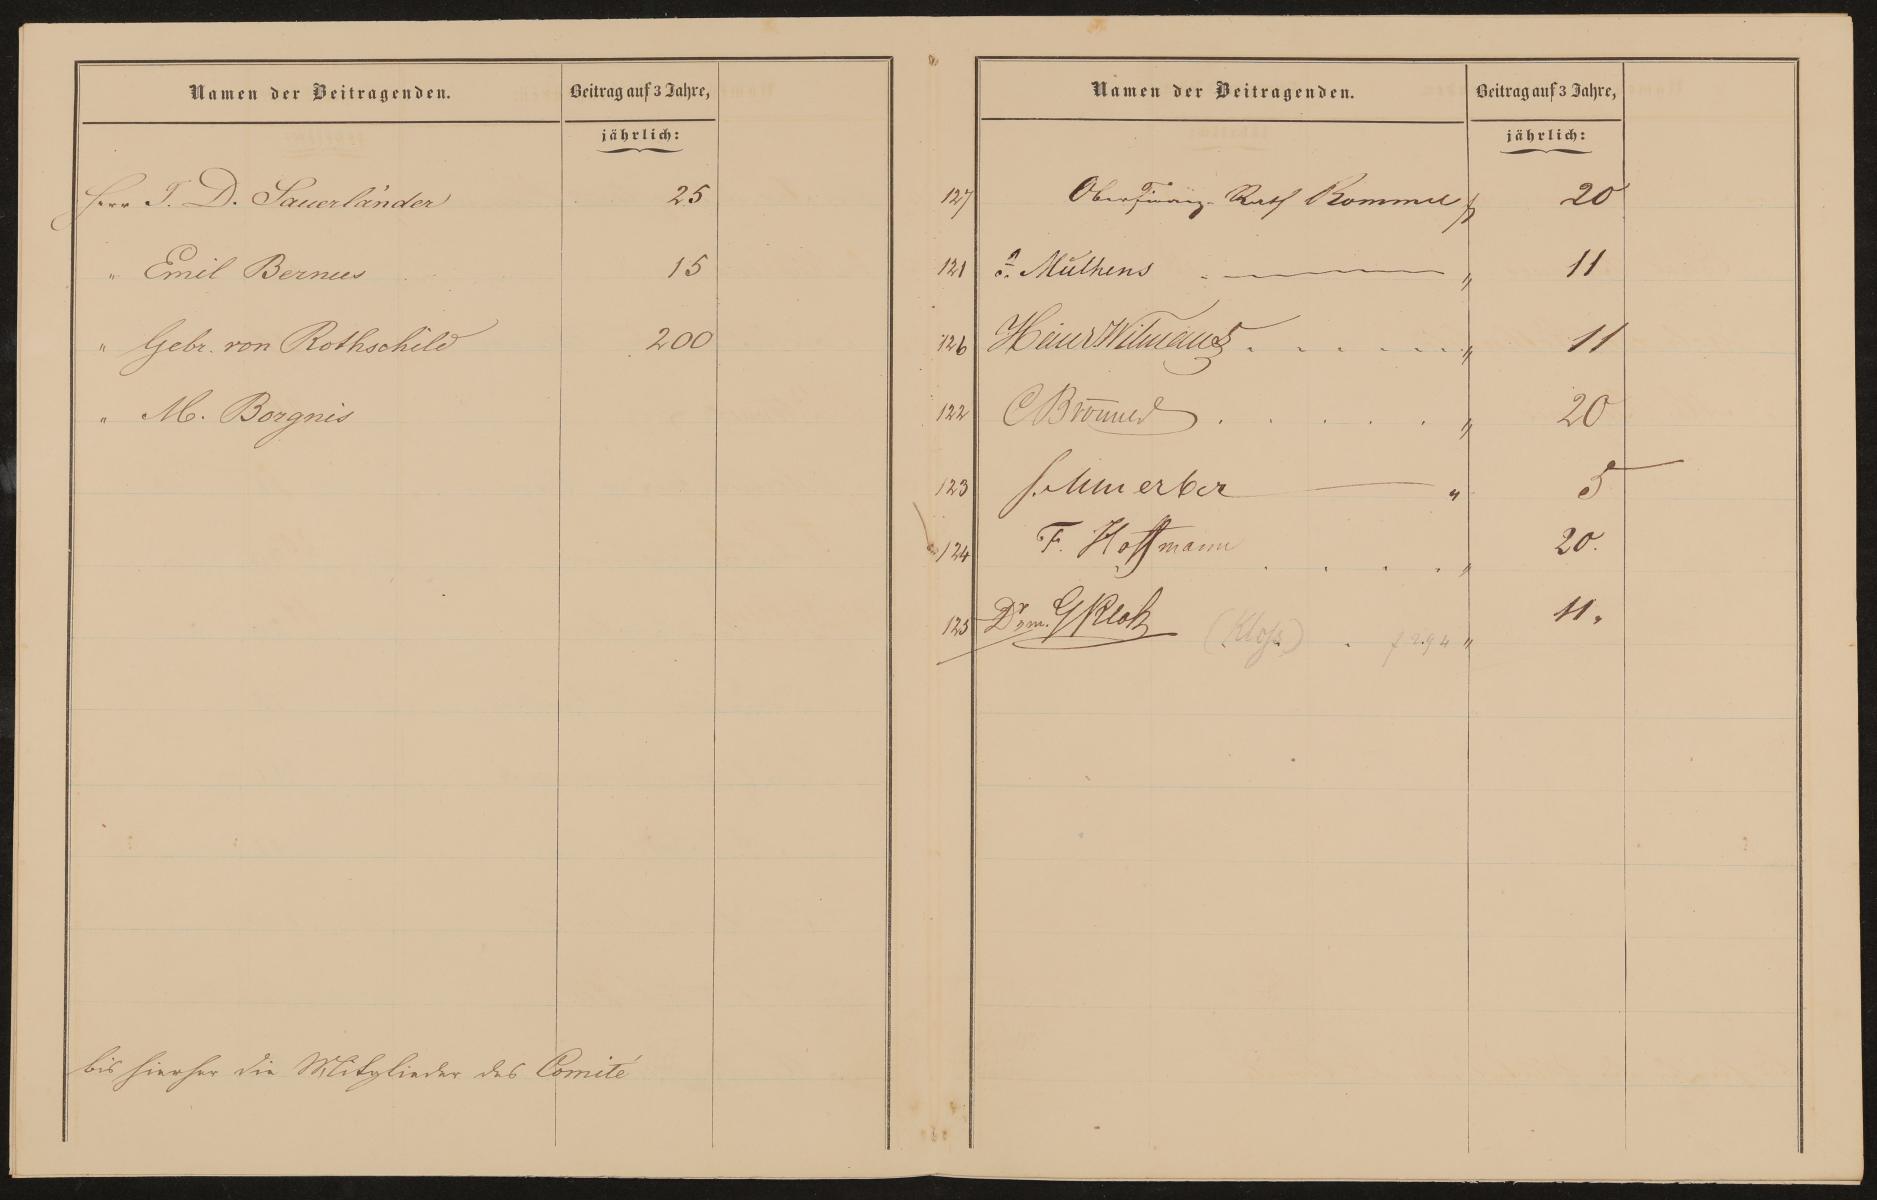 Namen der Beitragenden. Beitrag auf 3 Jahre,
jährlich:
Herr J. D. Sauerländer 25
" Emil Bernus 15
" Gebr. von Rothschild 200
" M. Borgnis
bis hierher die Mitglieder des Comité
Namen der Beitragenden. Beitrag auf 3 Jahre,
jährlich:
127 Oberfinanz-Rath Rommel f 20
121 Mülhens " 11
126 Heinr Wilmans " 11
122 C Brönner " 20
123 Schmerber " 5
124 F. Hoffmann " 20.
125 Dr. G Kloß (Kloss) f 294 " 11.